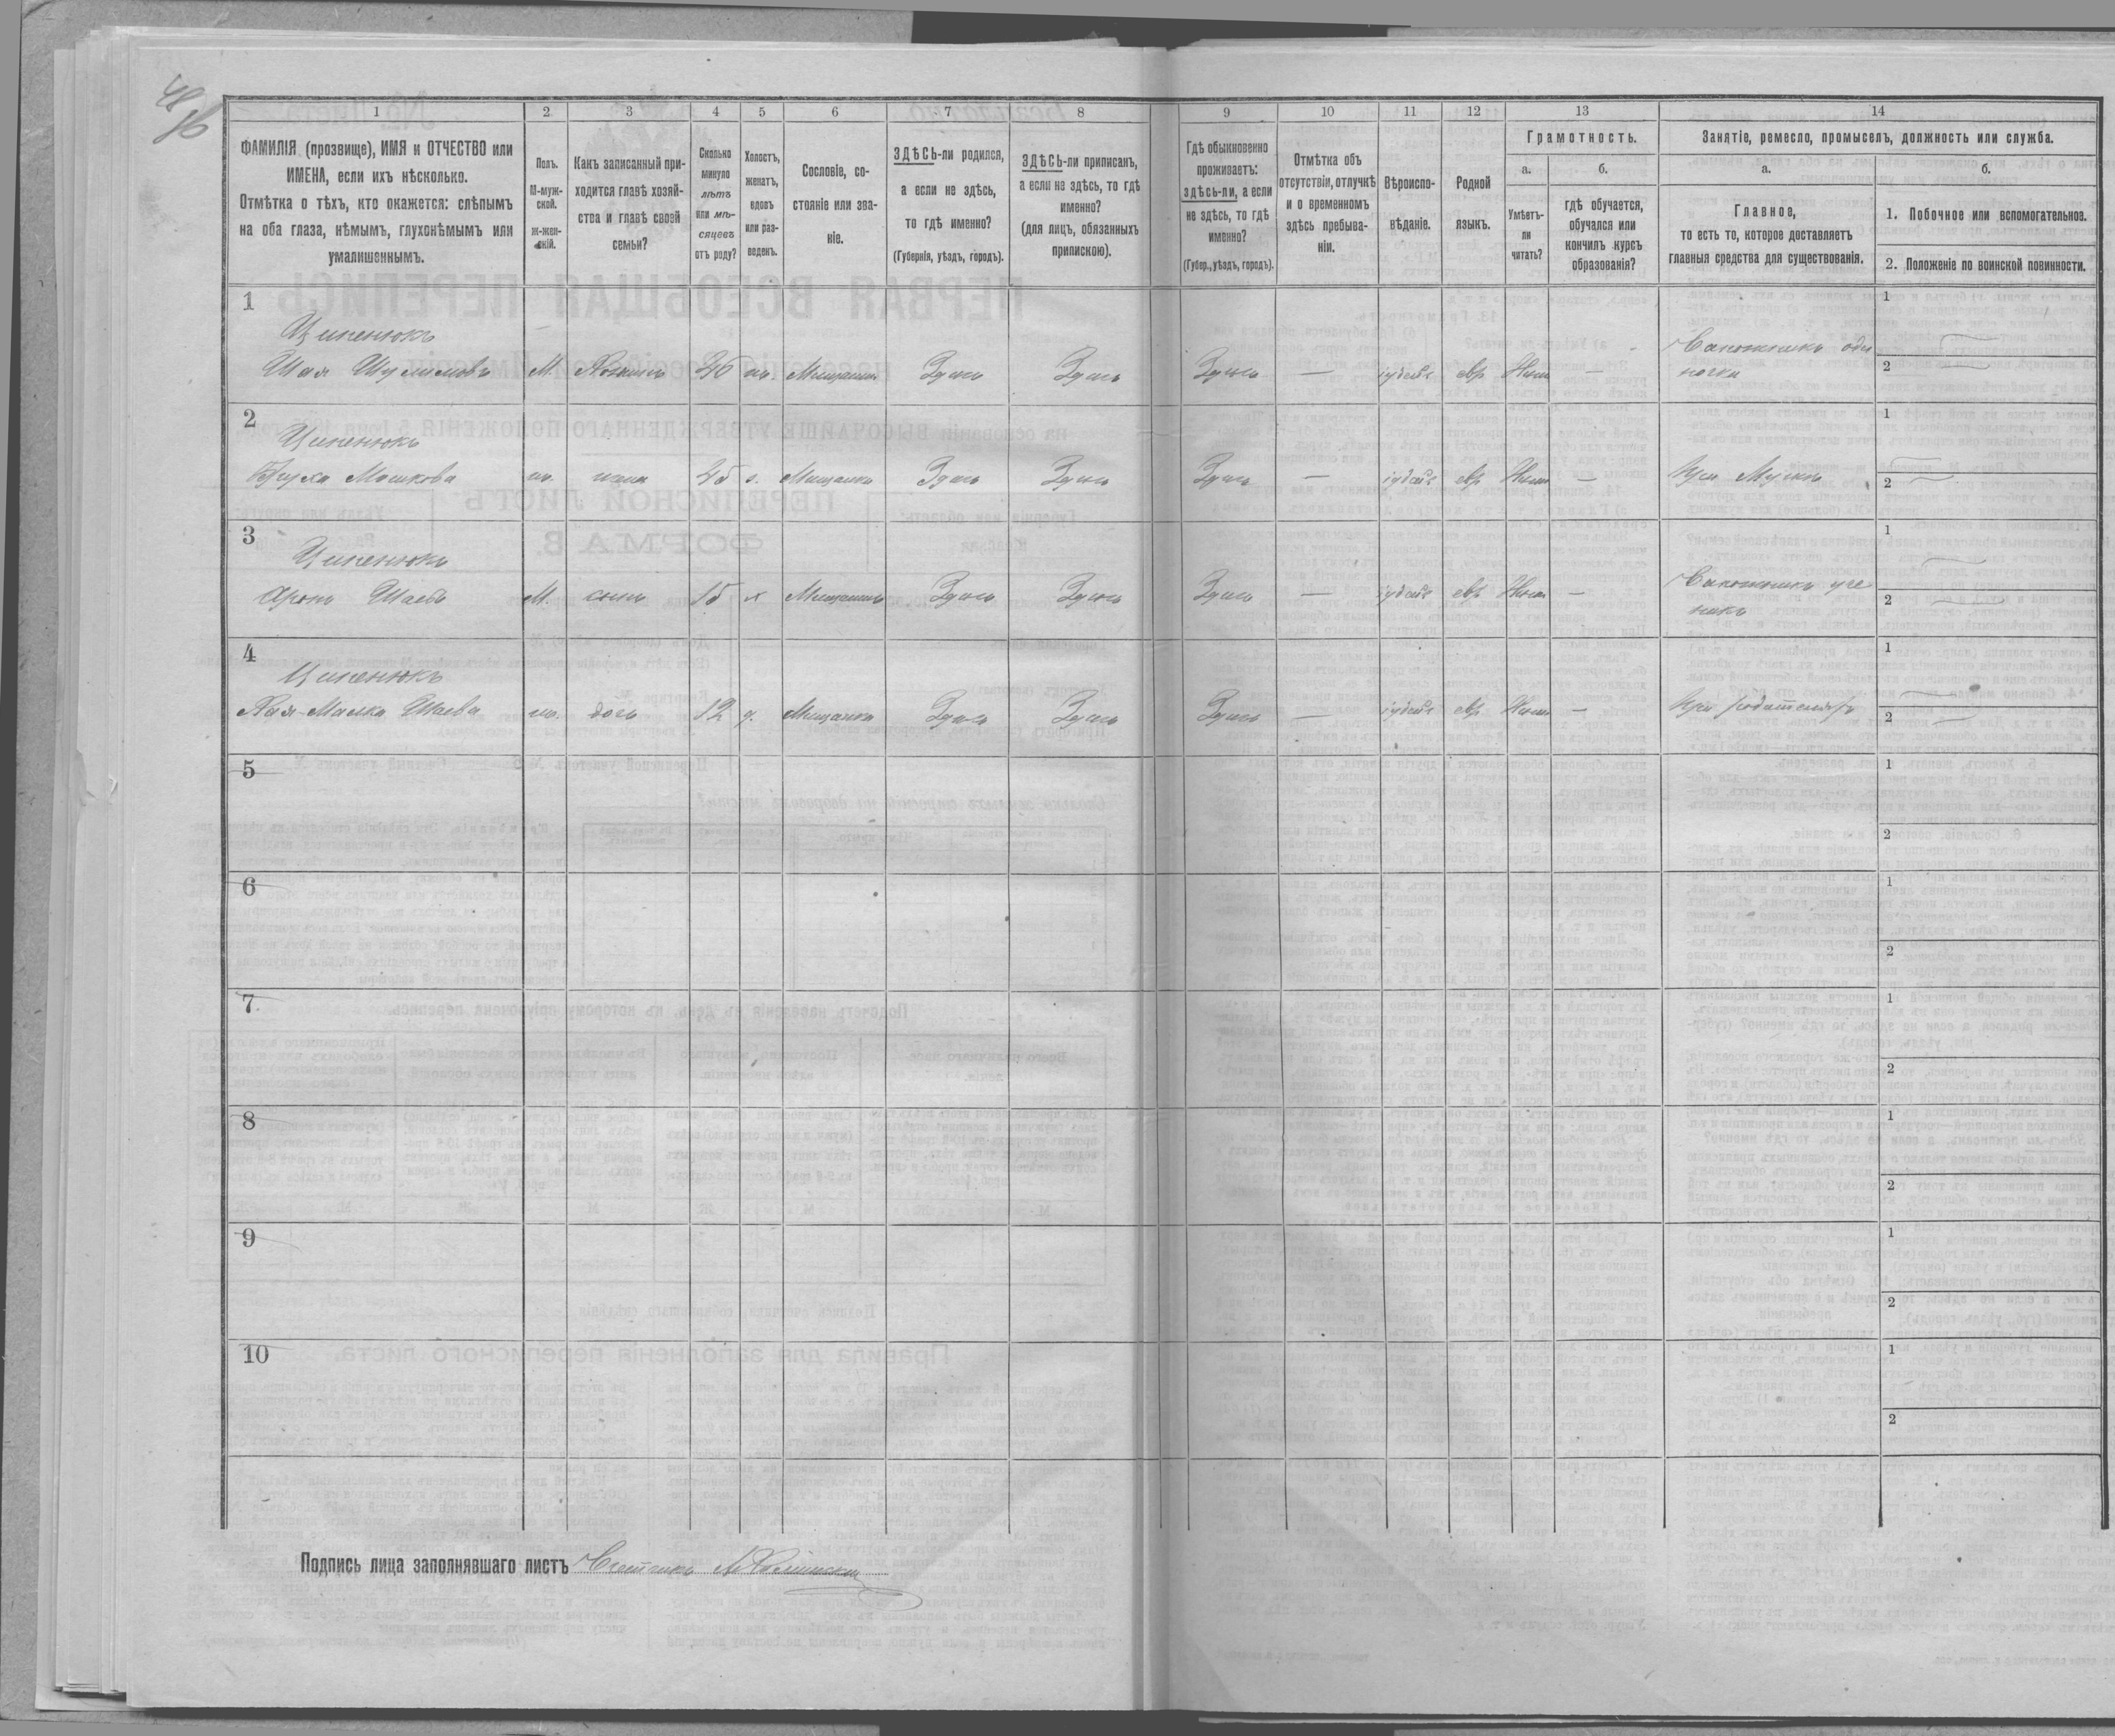 1 2 3 4 5 6 7 8 9 10 11 12 13 14
ФАМИЛІЯ (прозвище), ИМЯ и ОТЧЕСТВО или
ИМЕНА, если ихъ нѣсколько.
Отмѣтка о тѣхъ, кто окажется: слѣпымъ
на оба глаза, нѣмымъ, глухонѣмымъ или
умалишеннымъ.
Полъ.
М-муж-
ской.
Ж-жен-
скій.
Какъ записанный при-
ходится главѣ хозяй-
ства и главѣ своей
семьи?
Сколько
минуло
лѣтъ
или мѣ-
сяцевъ
отъ роду?
Холостъ,
женатъ,
вдовъ
или раз-
веденъ.
Сословіе, со-
стояніе или зва-
ніе.
ЗДѢСЬ-ли родился,
а если не здѣсь,
то гдѣ именно?
(Губернія, уѣздъ, городъ).
ЗДѢСЬ-ли приписанъ,
а если не здѣсь, то гдѣ
именно?
(для лицъ, обязанныхъ
припискою).
Гдѣ обыкновенно
проживаетъ:
здѣсь-ли, а если
не здѣсь, то гдѣ
именно?
(Губер., уѣздъ, городъ).
Отмѣтка объ
отсутствіи, отлучкѣ
и о временномъ
здѣсь пребыва-
ніи.
Вѣроиспо-
вѣданіе.
Родной
языкъ.
Грамотность.
а.
Умѣетъ-
ли
читать?
б.
гдѣ обучается,
обучался или
кончилъ курсъ
образованія?
Занятіе, ремесло, промыселъ, должность или служба.
а.
Главное,
то есть то, которое доставляетъ
главныя средства для существованія.
б.
1. Побочное или вспомогательное.
2. Положеніе по воинской повинности.
1
Ципенюкъ
Шая Шулимовъ М. Хозяинъ 46 ж. Мещанинъ Здѣсь Здѣсь Здѣсь — іудейс евр Нѣтъ —
Сапожникъ оди
ночка
1
2
2
Ципенюкъ
Бруха Мошкова ж. жена 45 з. Мещанка Здѣсь Здѣсь Здѣсь — іудейс евр Нѣтъ — При Мужѣ
1
2
3
Ципенюкъ
Аронъ Шаевъ М. сынъ 15 х Мещанинъ Здѣсь Здѣсь Здѣсь — іудейс евр Нѣтъ —
Сапожникъ уче
никъ
1
2
4
Ципенюкъ
Хая-Малка Шаева ж. дочь 12 д. Мещанка Здѣсь Здѣсь Здѣсь — іудейс евр Нѣтъ — При родителяхъ
1
2
5
1
2
6
1
2
7
1
2
8
1
2
9
1
2
10
1
2
Подпись лица заполнявшаго листъ Счетчикъ